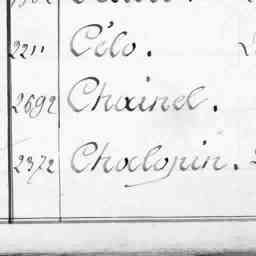 2211 Célo.
2692 Chainel.
2372 Chalopin.